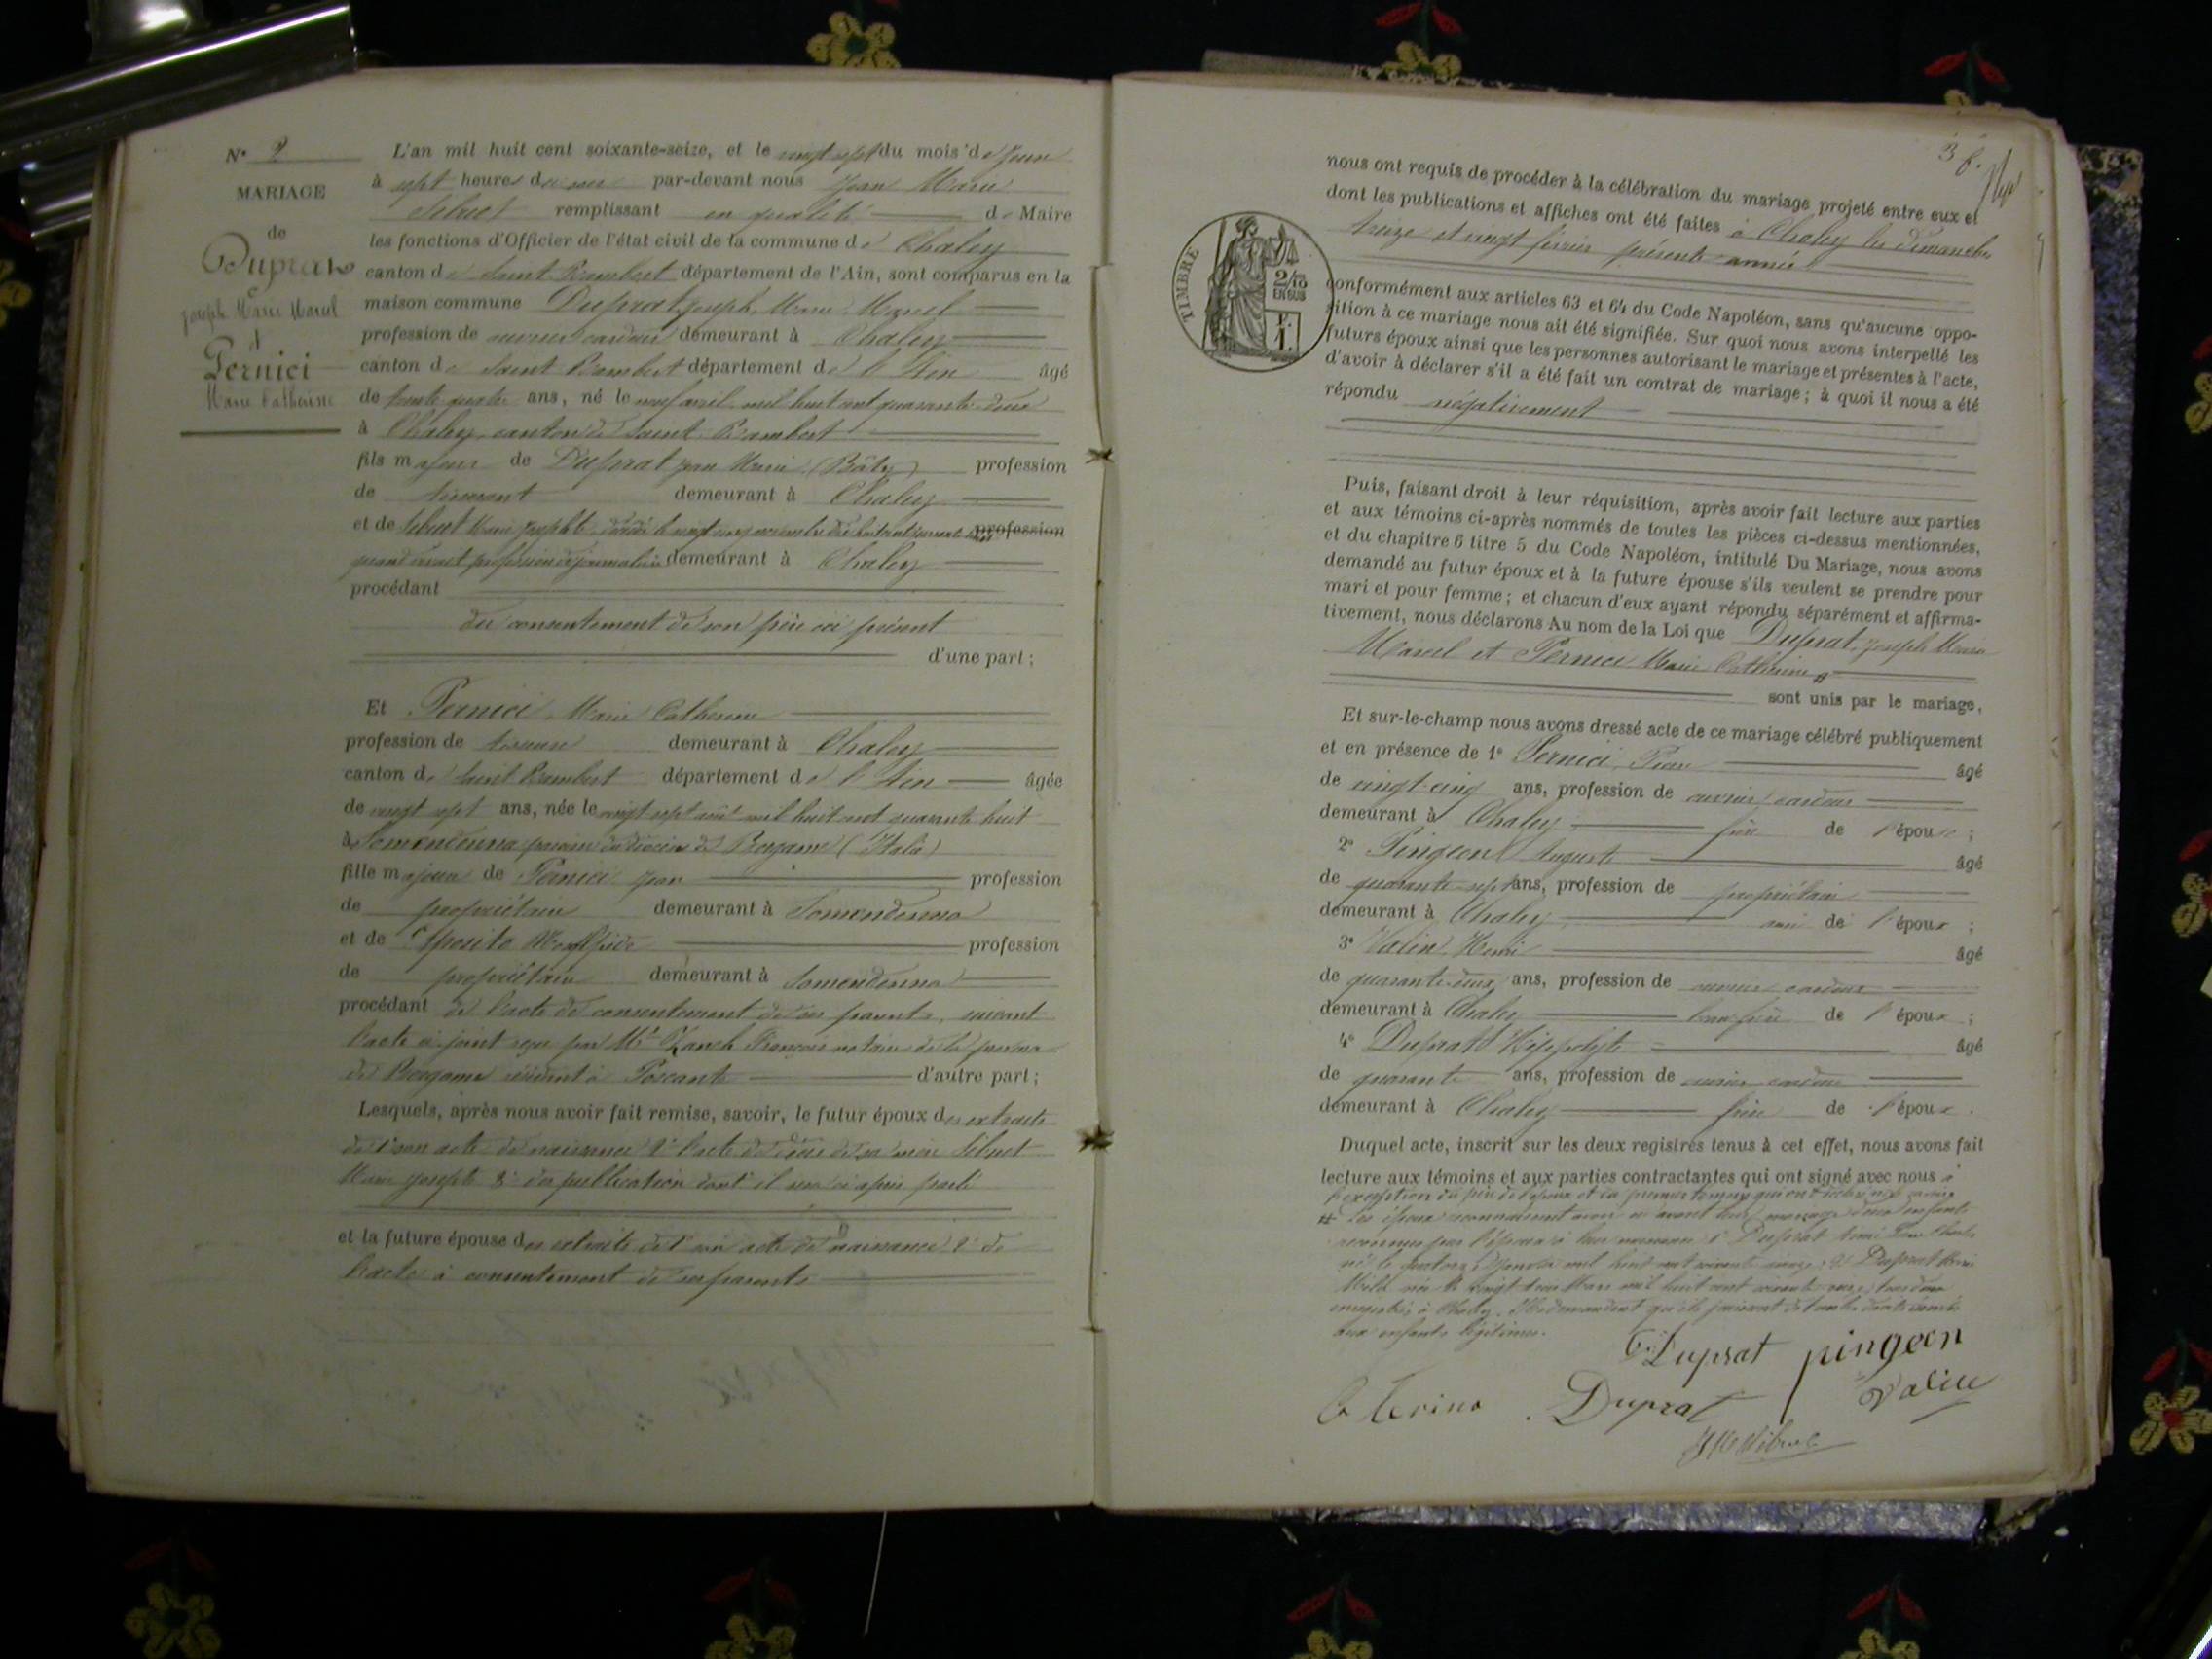 N° 2
MARIAGE
de
Duprat
joseph Marie Marcel
et
Pernici
Marie Catherine
L'an mil huit cent soixante-seize, et le vingt sept du mois de
à sept heures du soir par-devant nous jean Marie
remplissant en qualité de Maire
les fonctions d'Officier de l'état civil de la commune de Chaley
canton de Saint Rambert département de l'Ain, sont comparus en la
maison commune Duprat joseph Marie Marcel
profession de ouvrier cardeur demeurant à Chaley
canton de Saint Rambert département de l'Ain âgé
de trente quatre ans, né le neuf avril mil huit cent quarante deux
à Chaley canton de Saint Rambert
fils majeur de Duprat jean Marie (Bâty) profession
de tisserant demeurant à Chaley
et de Marie josephte décédée le vingt cinq profession
quand vivait profession de journalière demeurant à Chaley
procédant
du consentement de son père ici présent
d'une part ;
Et Pernici Marie Catherine
profession de demeurant à Chaley
canton de Saint Rambert département de l'Ain âgée
de vingt sept ans, née le vingt sept août mil huit cent quarante huit
à Somendenna diocèse de Bergame (Italie)
fille majeure de Pernici jean profession
de propriétaire demeurant à Somendenna
et de profession
de propriétaire demeurant à Somendenna
procédant de l'acte de consentement de ses parents, suivant
l'acte ci joint reçu par Me Zanch François notaire de la
de Bergame résidant à d'autre part ;
Lesquels, après nous avoir fait remise, savoir, le futur époux des extraits
de 1° son acte de naissance 2° l'acte de décès de sa mère
Marie josephte 3° des publication dont il sera ci après parlé
et la future épouse des extraits de 1° son acte de naissance 2° de
l'acte de consentement de ses parents
3 f.
nous ont requis de procéder à la célébration du mariage projeté entre eux et
dont les publications et affiches ont été faites à Chaley les dimanches
treize et vingt février présente année
TIMBRE
2/10
EN SUS
conformément aux articles 63 et 64 du Code Napoléon, sans qu'aucune oppo-
sition à ce mariage nous ait été signifiée. Sur quoi nous avons interpellé les
futurs époux ainsi que les personnes autorisant le mariage et présentes à l'acte,
d'avoir à déclarer s'il a été fait un contrat de mariage ; à quoi il nous a été
répondu négativement
Puis, faisant droit à leur réquisition, après avoir fait lecture aux parties
et aux témoins ci-après nommés de toutes les pièces ci-dessus mentionnées,
et du chapitre 6 titre 5 du Code Napoléon, intitulé Du Mariage, nous avons
demandé au futur époux et à la future épouse s'ils veulent se prendre pour
mari et pour femme ; et chacun d'eux ayant répondu séparément et affirma-
tivement, nous déclarons Au nom de la Loi que Duprat joseph Marie
Marcel et Pernici Marie Catherine
sont unis par le mariage,
Et sur-le-champ nous avons dressé acte de ce mariage célébré publiquement
et en présence de 1° Pernici âgé
de vingt-cinq ans, profession de ouvrier cardeur
demeurant à Chaley frère de l'épouse ;
2° Pingeon Auguste âgé
de quarante-sept ans, profession de propriétaire
demeurant à Chaley ami de l'époux ;
3° Valin Henri âgé
de quarante-deux ans, profession de ouvrier cardeur
demeurant à Chaley beau frère de l'époux ;
4° Duprat Hippolyte âgé
de quarante ans, profession de ouvrier cardeur
demeurant à Chaley frère de l'époux.
Duquel acte, inscrit sur les deux registres tenus à cet effet, nous avons fait
lecture aux témoins et aux parties contractantes qui ont signé avec nous à
l'exception du père de l'époux et du premier témoin qui ont
Les époux reconnaissent avoir eu avant leur mariage deux enfants
reconnus par l'époux à leur naissance 1° Duprat Aimé
né le quatorze mil huit cent soixante 2° Duprat
née le vingt Mars mil huit cent soixante tous deux
à Chaley. demandent qu'ils jouissent de tous les droits
aux enfants légitimes.
Duprat pingeon
Caterina Duprat Valin